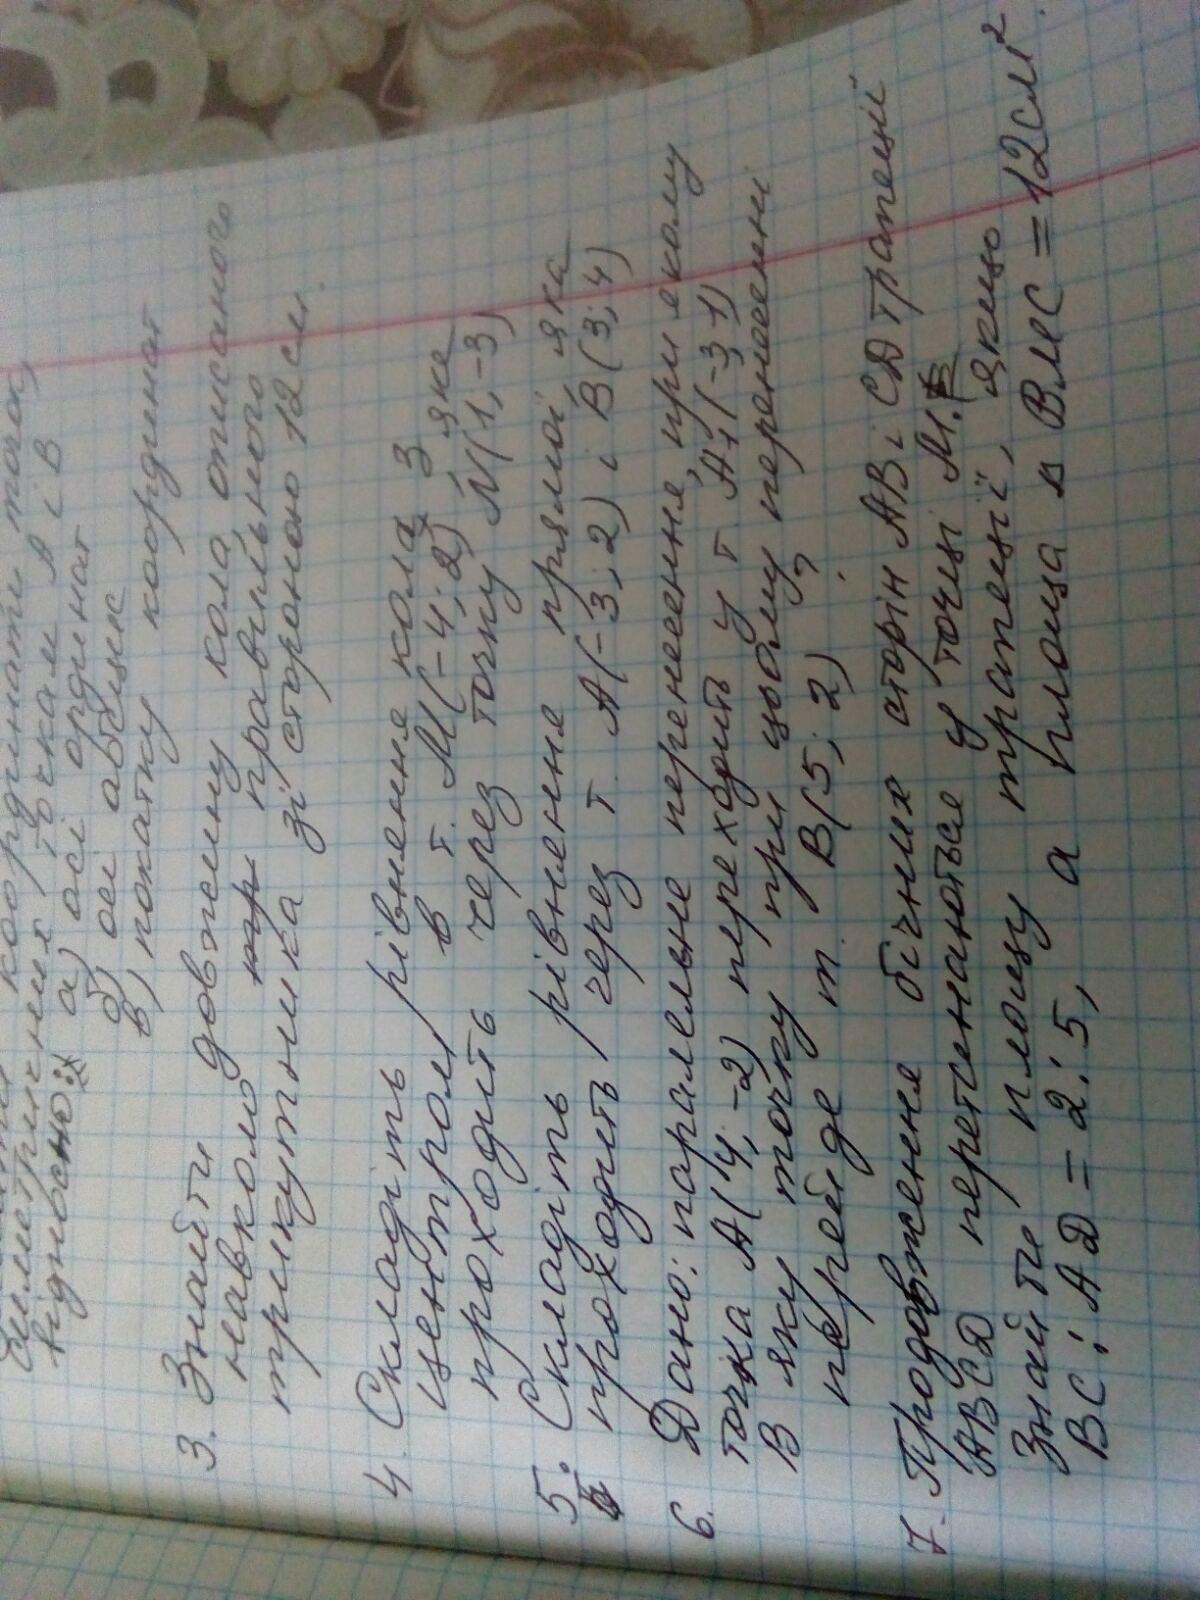 координати точок,
симетричних точкам А і В
відносно: а) осі ординат
б) осі абсцис
в) початку координат
3. Знайти довжину кола, описаного
навколо правильного
трикутника зі стороною 12 см.
4. Складіть рівняння кола з
центром в т. М(-4; 2), яке
проходить через точку N(1; -3)
5. Складіть рівняння прямої, яка
проходить через т. А(-3; 2) і В(3; 4)
6. Дано: паралельне перенесення, при якому
точка А(4; -2) переходить у т. А₁(-3; 1)
В яку точку при цьому перенесенні
перейде т. В(5; 2)?
7. Продовження бічних сторін АВ і СD трапеції
ABCD перетинаються у точці М.
Знайти площу трапеції, якщо
BC : AD = 2 : 5, а площа ▵ ВМС = 12 см².